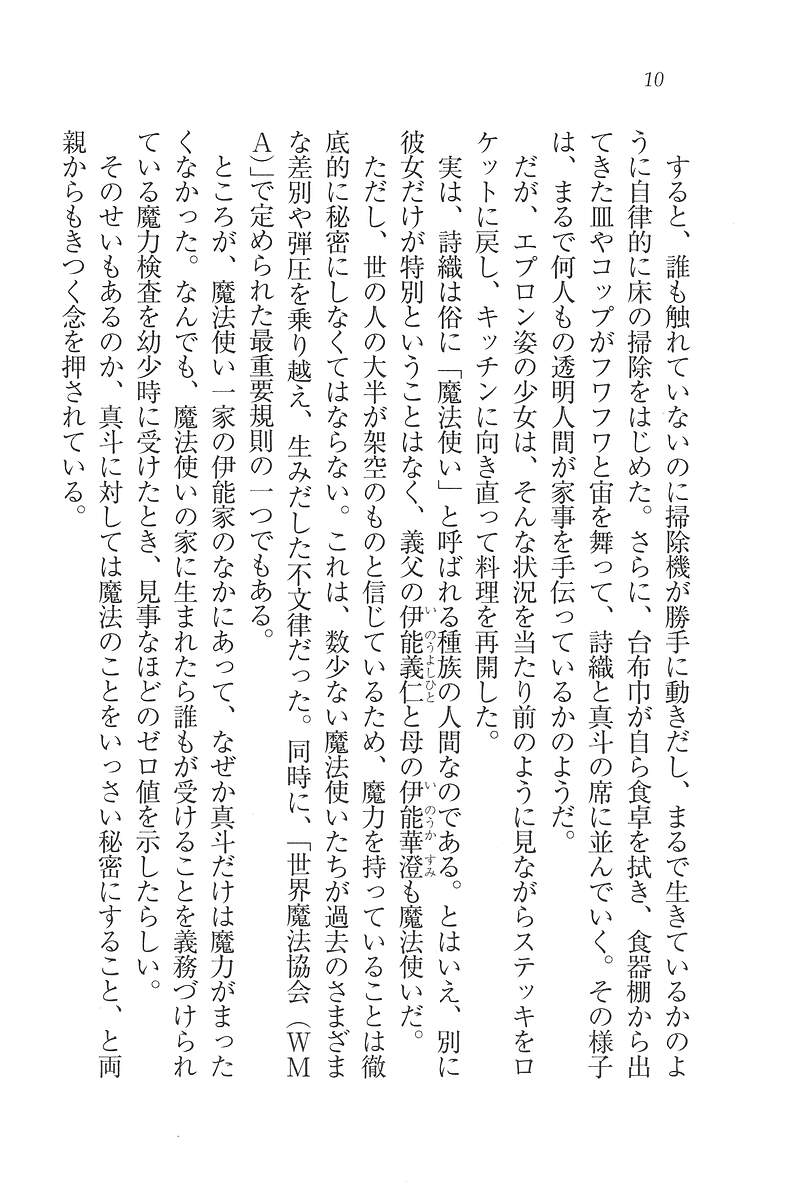 10
すると、誰も触れていないのに掃除機が勝手に動きだし、まるで生きているかのよ
うに自律的に床の掃除をはじめた。さらに、台布巾が自ら食卓を拭き、食器棚から出
てきた皿やコップがフワフワと宙を舞って、詩織と真斗の席に並んでいく。その様子
は、まるで何人もの透明人間が家事を手伝っているかのようだ。
だが、エプロン姿の少女は、そんな状況を当たり前のように見ながらステッキをロ
ケットに戻し、キッチンに向き直って料理を再開した。
実は、詩織は俗に「魔法使い」と呼ばれる種族の人間なのである。とはいえ、別に
彼女だけが特別ということはなく、義父の伊能義仁と母の伊能華澄も魔法使いだ。
いのうよしひと
いのうかすみ
ただし、世の人の大半が架空のものと信じているため、魔力を持っていることは徹
底的に秘密にしなくてはならない。これは、数少ない魔法使いたちが過去のさまざま
な差別や弾圧を乗り越え、生みだした不文律だった。同時に、「世界魔法協会（ＷＭ
Ａ）」で定められた最重要規則の一つでもある。
ところが、魔法使い一家の伊能家のなかにあって、なぜか真斗だけは魔力がまった
くなかった。なんでも、魔法使いの家に生まれたら誰もが受けることを義務づけられ
ている魔力検査を幼少時に受けたとき、見事なほどのゼロ値を示したらしい。
そのせいもあるのか、真斗に対しては魔法のことをいっさい秘密にすること、と両
親からもきつく念を押されている。